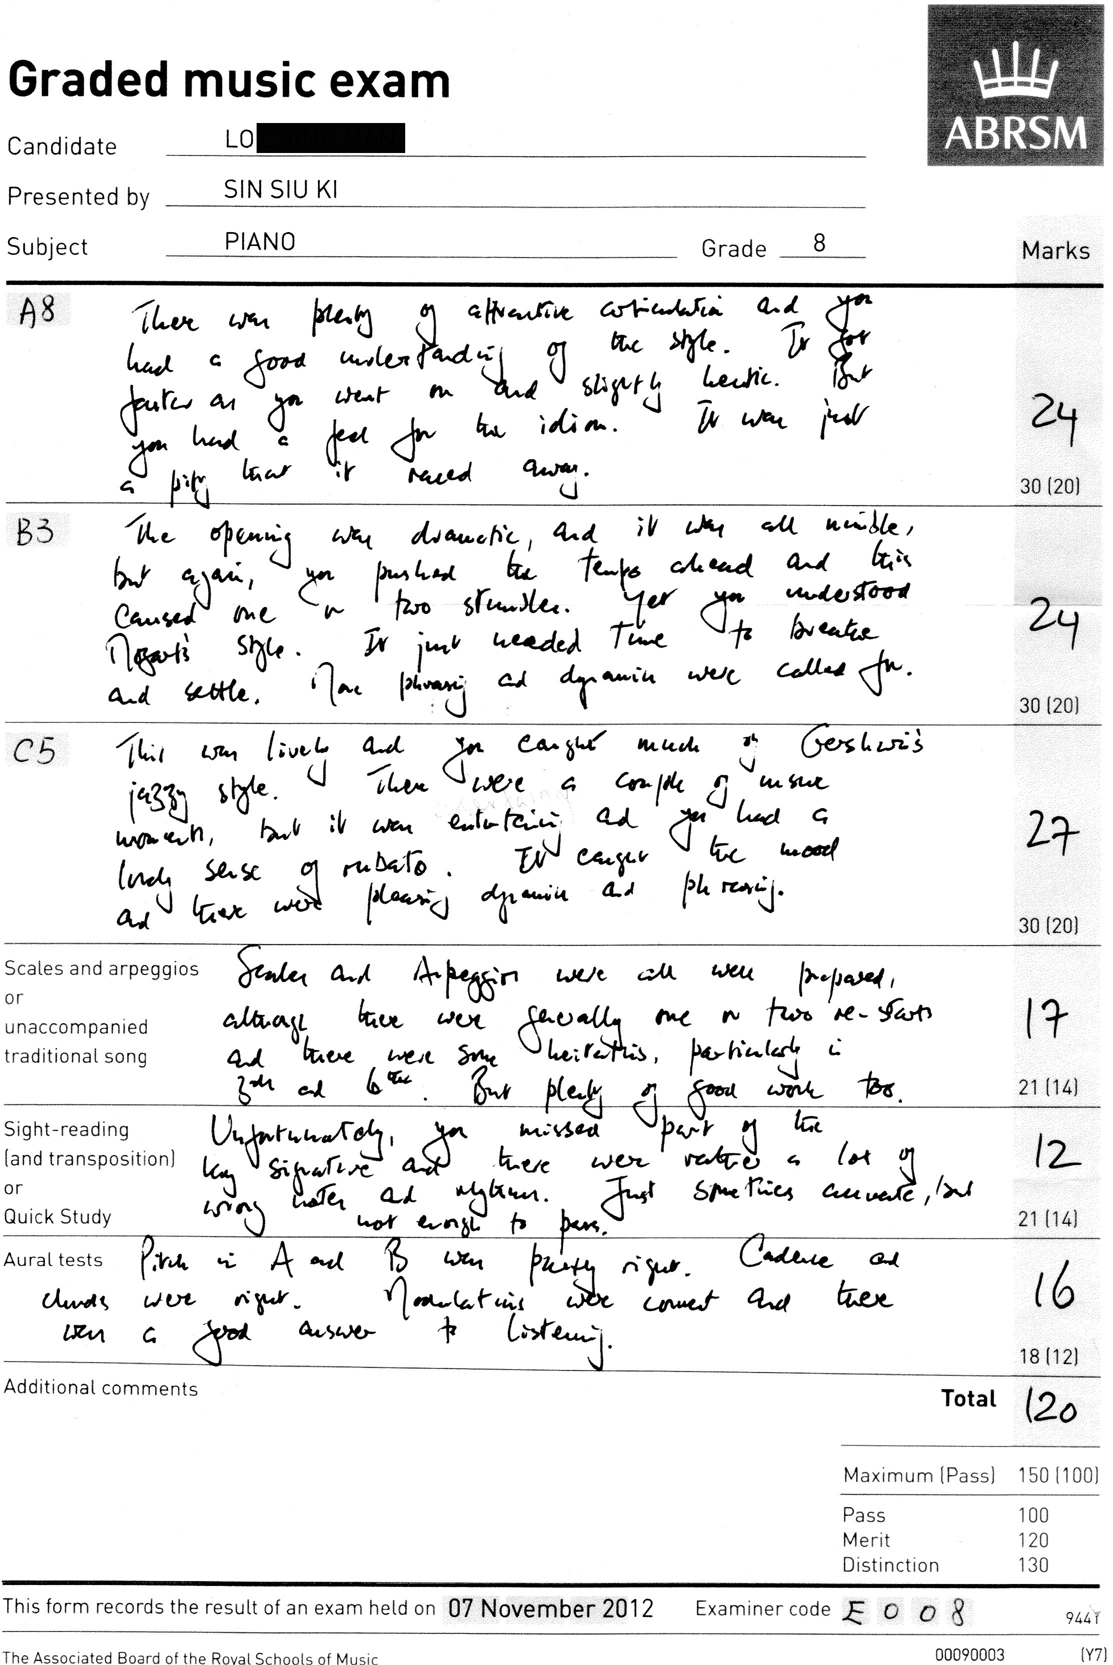 Graded music exam
ABRSM
Candidate LO
Presented by SIN SIU KI
Subject PIANO Grade 8 Marks
A8 There was plenty of attractive articulation and you
had a good understanding of the style. It got
faster as you went on and slightly hectic. But
you had a feel for the idiom. It was just
a pity that it raced away.
24
30 (20)
B3 The opening was dramatic, and it was all nimble,
but again, you pushed the tempo ahead and this
caused one or two stumbles. Yet you understood
Mozart's style. It just needed time to breathe
and settle. More phrasing and dynamics were called for.
24
30 (20)
C5 This was lively and you caught much of Gershwin's
jazzy style. There were a couple of unsure
moments, but it was entertaining and you had a
lovely sense of rubato. It caught the mood
and there were pleasing dynamics and phrasing.
27
30 (20)
Scales and arpeggios
or
unaccompanied
traditional song
Scales and Arpeggios were all well prepared,
although there were generally one or two re-starts
and there were some hesitations, particularly in
3rds and 6ths. But plenty of good work too.
17
21 (14)
Sight-reading
(and transposition)
or
Quick Study
Unfortunately, you missed part of the
key signature and there were rather a lot of
wrong notes and rhythms. Just sometimes accurate, but
not enough to pass.
12
21 (14)
Aural tests Pitch in A and B was partly right. Cadence and
chords were right. Modulations were correct and there
was a good answer to listening.
16
18 (12)
Additional comments
Total 120
Maximum (Pass) 150 (100)
Pass 100
Merit 120
Distinction 130
This form records the result of an exam held on 07 November 2012 Examiner code E 0 0 8 944Y
The Associated Board of the Royal Schools of Music 00090003 (Y7)